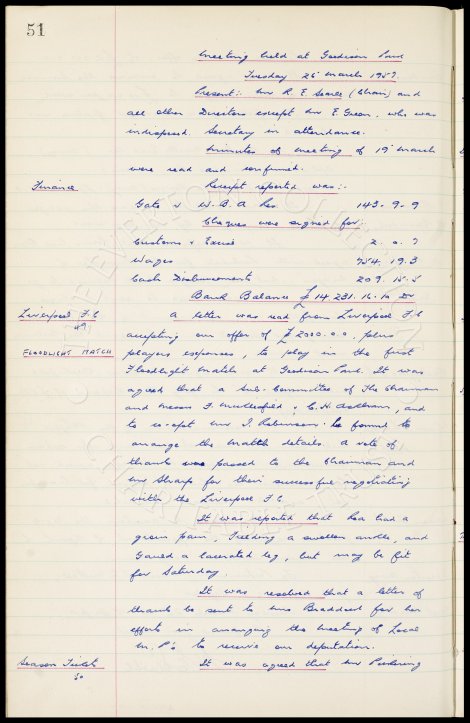 51
Meeting held at Goodison Park
Tuesday 26 March 1957
Present:- Mr R. E. Searle (Chair) and
all other Directors except Mr E. Green, who was
indisposed. Secretary in attendance.
Minutes of meeting of 19 March
were read and confirmed.
Finance
Receipt reported was:-
Gate v W.B.A Res 143. 9. 9
Cheques were signed for:
Customs & Excise 2. 0. 7
Wages 754. 19. 3
Cash Disbursements 209. 15. 5
Bank Balance £14,231. 16. 10 Dr
Liverpool F.C
49
A letter was read from Liverpool F.C
accepting our offer of £2000. 0. 0. plus
FLOODLIGHT MATCH
players expenses, to play in the first
Floodlight match at Goodison Park. It was
agreed that a sub-Committee of the Chairman
and Messrs F. Micklesfield, C. H. Askham, and
to co-opt Mr J. Robinson be formed to
arrange the match details. A vote of
thanks was passed to the Chairman and
Mr Sharp for their successful negotiating
within the Liverpool F.C.
It was reported that Rea had a
groin pain, Fielding a swollen ankle, and
Gauld a lacerated leg, but may be fit
for Saturday.
It was resolved that a letter of
thanks be sent to Mrs Braddock for her
efforts in arranging the meeting of Local
M.P's to receive our deputation.
Season Ticket
50
It was agreed that Mr Pickering